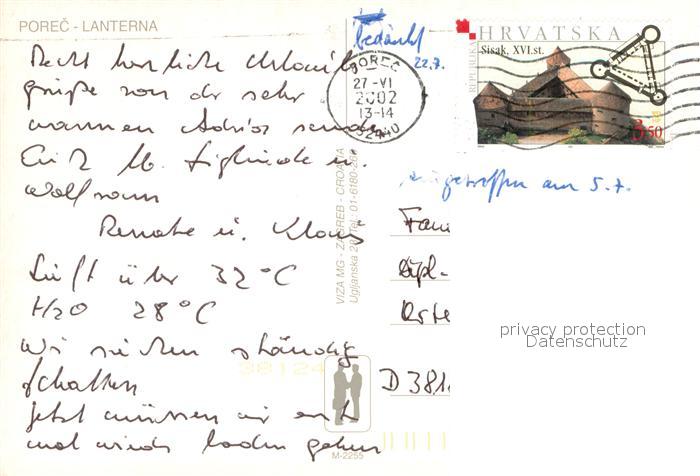 POREČ - LANTERNA
Recht herzliche Urlaubs
grüße von der sehr
warmen Adria senden
Euch lb. Sieglinde u.
Wolfram
Renate u. Klaus
Luft über 32°C
H2O 28°C
Wir suchen ständig
Schatten
Jetzt müssen wir erst
mal wieder baden gehen
VIZA MG - ZAGREB - CROATIA
Ugljanska 20, Tel: 01-6180-26
M-2255
38124
bedankt
22.7.
POREČ
27-VI
2002
13-14
52440
REPUBLIKA HRVATSKA
Sisak, XVI.st.
3.50
eingetroffen am 5.7.
Fam
Dipl-
Oste
D 381
privacy protection
Datenschutz